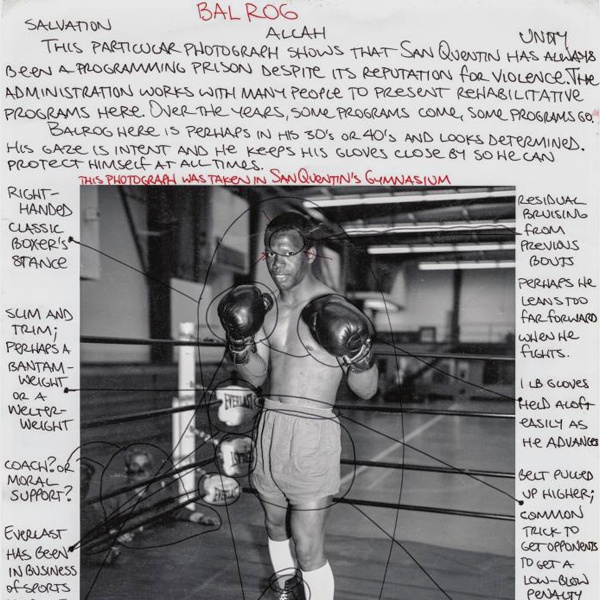 BALROG
SALVATION
ALLAH
UNITY
THIS PARTICULAR PHOTOGRAPH SHOWS THAT SAN QUENTIN HAS ALWAYS
BEEN A PROGRAMMING PRISON DESPITE ITS REPUTATION FOR VIOLENCE. THE
ADMINISTRATION WORKS WITH MANY PEOPLE TO PRESENT REHABILITATIVE
PROGRAMS HERE. OVER THE YEARS, SOME PROGRAMS COME, SOME PROGRAMS GO.
BALROG HERE IS PERHAPS IN HIS 30'S OR 40'S AND LOOKS DETERMINED.
HIS GAZE IS INTENT AND HE KEEPS HIS GLOVES CLOSE BY SO HE CAN
PROTECT HIMSELF AT ALL TIMES.
THIS PHOTOGRAPH WAS TAKEN IN SAN QUENTIN'S GYMNASIUM
RIGHT-
HANDED
CLASSIC
BOXER'S
STANCE
SLIM AND
TRIM;
PERHAPS A
BANTAM-
WEIGHT
OR A
WELTER-
WEIGHT
COACH? OR
MORAL
SUPPORT?
EVERLAST
HAS BEEN
IN BUSINESS
OF SPORTS
RESIDUAL
BRUISING
FROM
PREVIOUS
BOUTS
PERHAPS HE
LEANS TOO
FAR FORWARD
WHEN HE
FIGHTS.
1 LB GLOVES
HELD ALOFT
EASILY AS
HE ADVANCES
BELT PULLED
UP HIGHER;
COMMON
TRICK TO
GET OPPONENTS
TO GET A
LOW-BLOW
PENALTY
EVERLAST